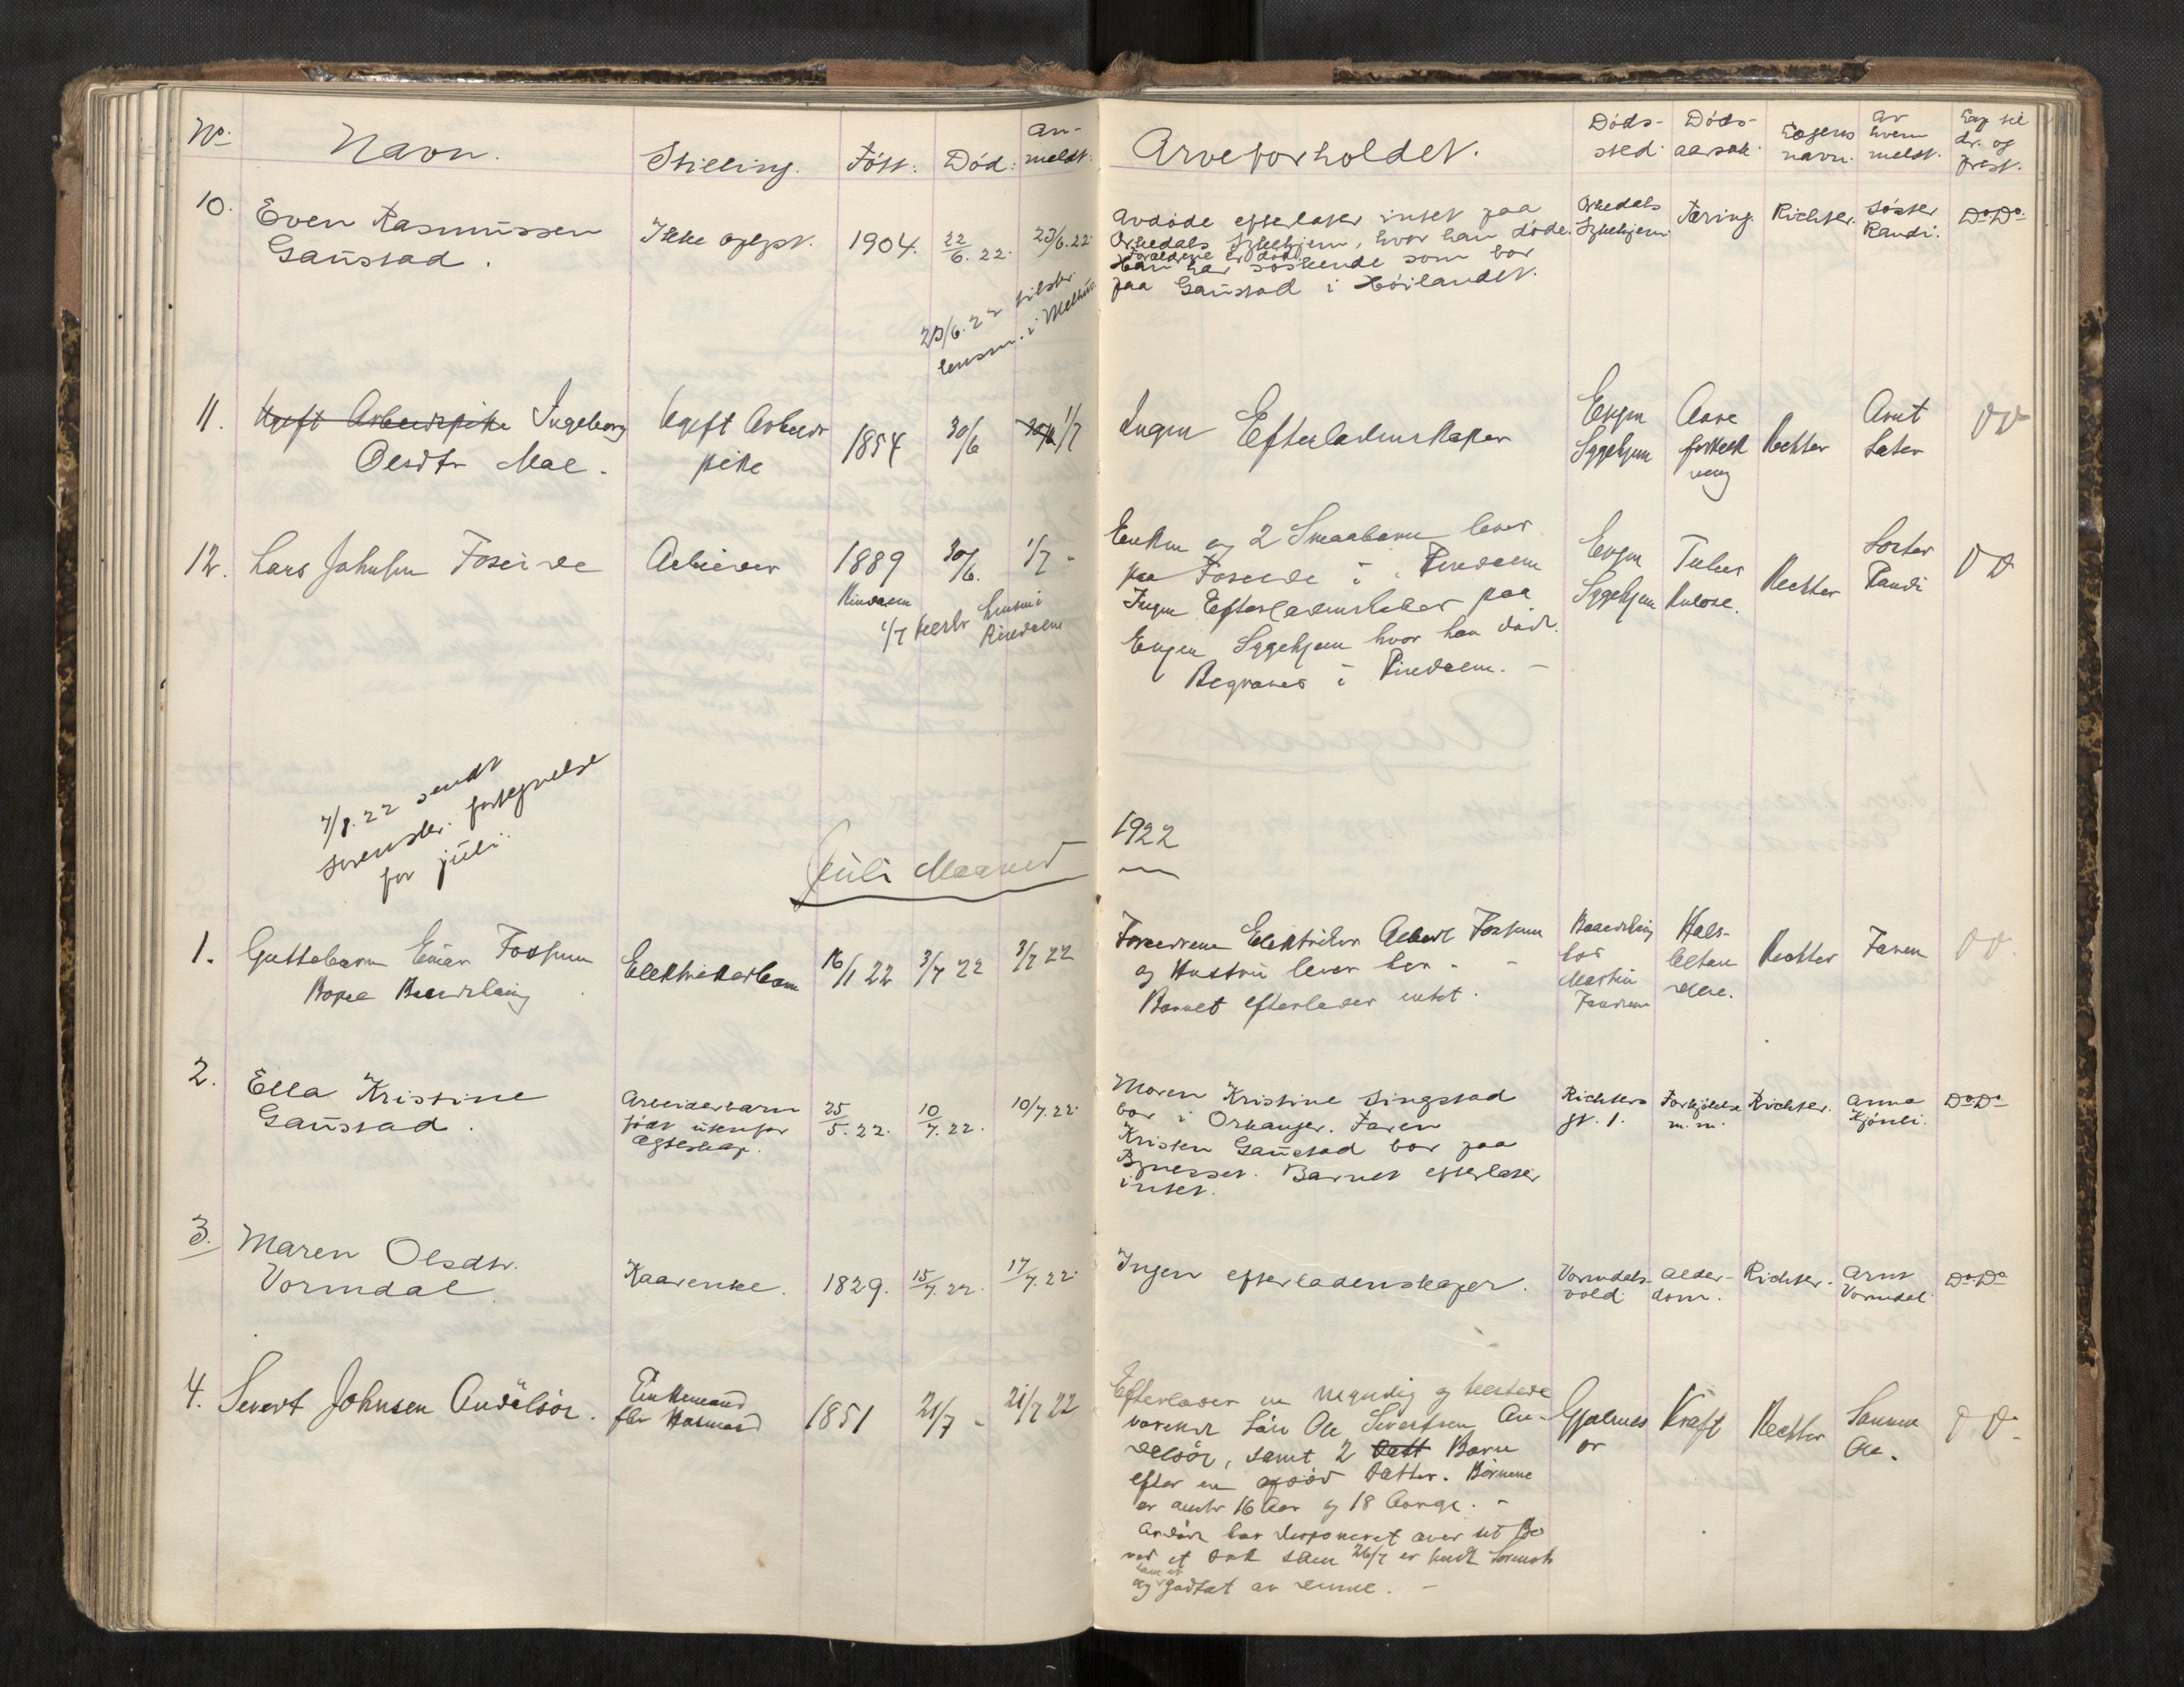 No. Navn. Stilling. Født. Død. An-
meldt.
Arveforholdet. Døds-
sted. Døds-
aarsak. Lægens
navn. Av
hvem
meldt. Exp til
dr. og
prest.
10. Even Rasmussen
Gaustad.
Ikke oplyst. 1904. 22/6.22. 23/6.22.
23/6.22 tilskr.
lensm. i Melhus
Avdøde efterlater intet paa
Orkedals Sykehjem, hvor han døde.
Forældrene er død.
Han har søskende som bor
paa Gaustad i Høilandet.
Orkedals
Sykehjem. Tæring. Richter. Søster
Randi. Do Do
11. Ugift Arbeidspike Ingeborg
Olsdtr Moe.
Ugift Arbeids
pike 1854 30/6 1/7
Ingen Efterladenskaper
Evjen
Sygehjem Aare
forkalk
ning Richter Arnt
Sæter D D
12. Lars Johnsen Foseide Arbeider 1889 30/6. 1/7 "
Rindalen
1/7 tilskr lensm i
Rindalen
Enken og 2 Smaabarn lever
paa Foseide i Rindalen
Ingen Efterladenskaber paa
Evjen Sygehjem hvor han døde.
Begraves i Rindalen. -
Evjen
Sygehjem Tuber
kulose. Richter Søster
Randi D D
7/8.22 sendt
sorenskr. fortegnelse
for juli.
Juli Maaned 1922
1. Guttebarn Einar Fossum
Elektrikerbarn 16/1 22 3/7 22 3/7 22
Forældrene Elektriker Albert Fossum
og Hustru lever her -
Barnet efterlader intet.
hos
Martin Hals-
Richter Faren D D
2. Ella Kristine
Gaustad.
Arbeiderbarn
født utenfor
ægteskap. 25/5.22. 10/7.22. 10/7.22.
Moren Kristine Singstad
bor i Orkanger. Faren
Kristen Gaustad bor paa
Bynesset. Barnet efterlater
intet.
Richters
gt. 1. Forkjølelse
m.m. Richter. Anna
Kjønli. Do Do
3. Maren Olsdtr.
Vormdal
Kaarenke. 1829. 15/7.22. 17/7.22.
Ingen efterladenskaper.
Vormdals-
vold Alder-
dom. Richter. Arnt
Vormdal Do Do
4. Sivert Johnsen Andølsør.
Enkemand
fhv Husmand 1851 21/7 - 21/7 22
Efterlader en myndig og tilstede
værende Søn Ole Sivertsen An-
dølsør, samt 2 Datt Barn
efter en afdød Datter. Børnene
er omtr 16 Aar og 18 Aar gl. -
Avdøde har disponeret over sit Bo
ved et Dok som 26/7 er sendt Sorensk
og godtat av denne. -
Gjølmes
ør Kræft Richter Sønnen
Ole. D D